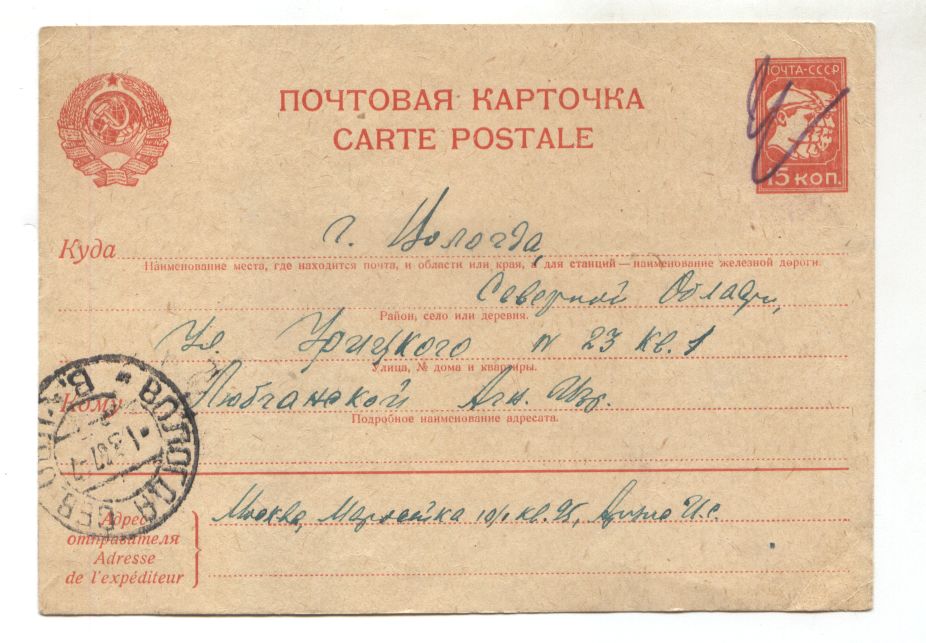 ПОЧТОВАЯ КАРТОЧКА
CARTE POSTALE
ПОЧТА-СССР
15 КОП.
Куда г. Вологда,
Наименование места, где находится почта, и области или края, а для станций — наименование железной дороги.
Северной Области,
Район, село или деревня.
Ул Урицкого N 23 кв. 1
Улица, № дома и квартиры.
Кому Любчанской
Подробное наименование адресата.
ВОЛОГДА
Адрес отправителя
Москва, Маросейка 10/1 кв. 95, И.С.
Adresse
de l'expéditeur